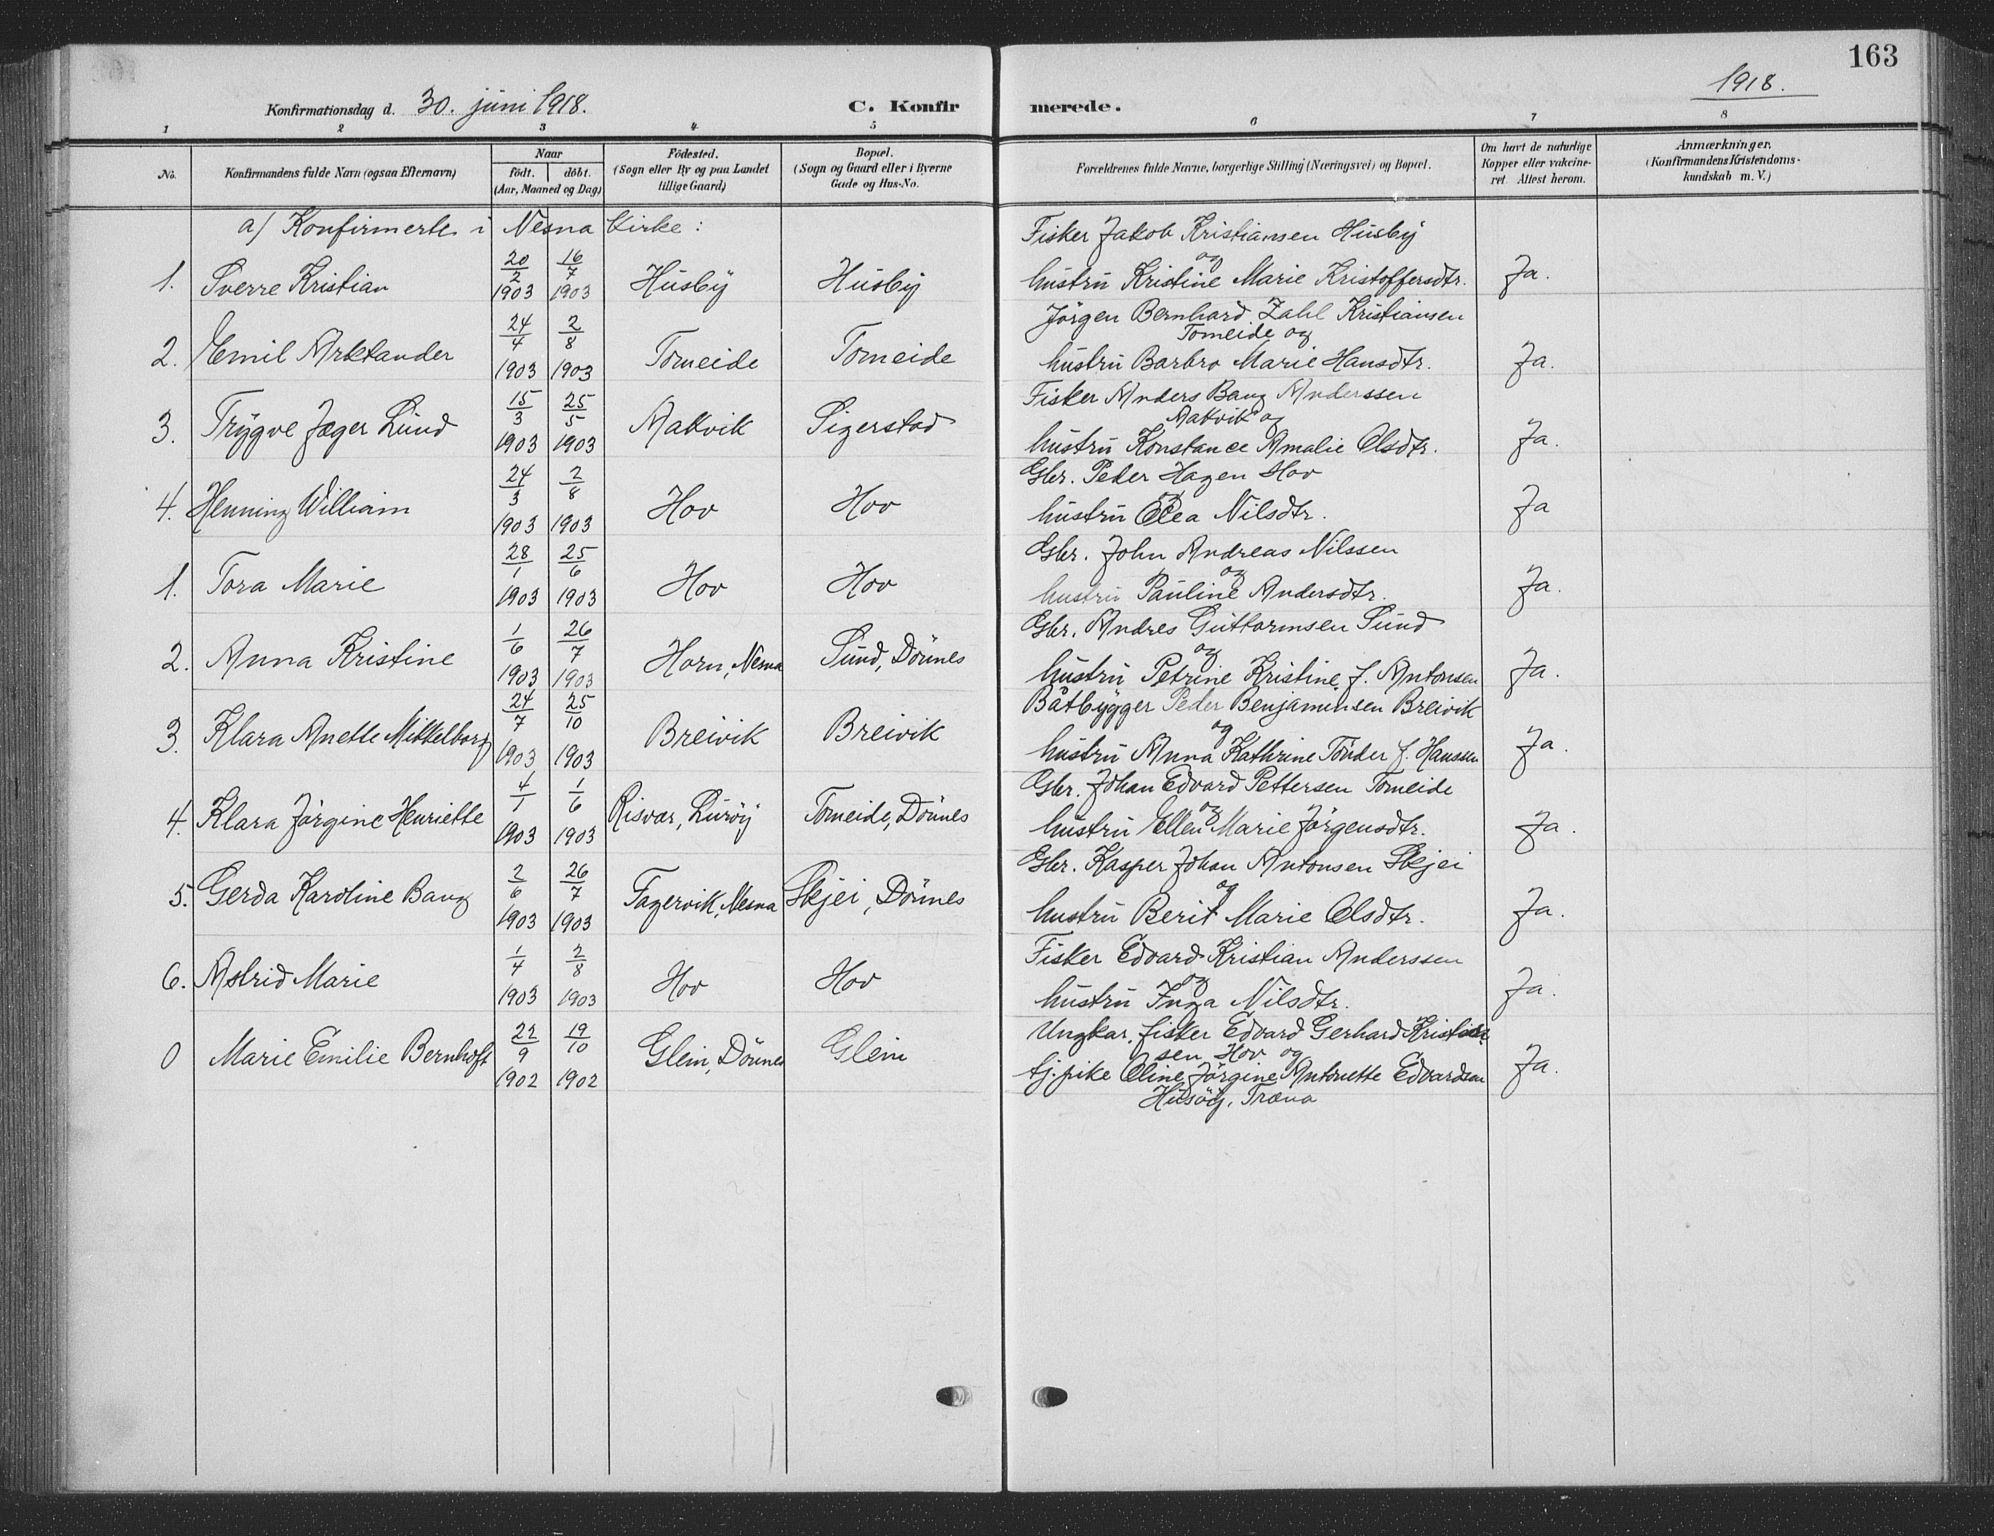 163
1918.
Konfirmationsdag d. 30. juni 1918. C. Konfirmerede.
1 2 3 4 5 6 7 8
No. Konfirmandens fulde Navn (ogsaa Efternavn) Naar födt. döbt. (Aar, Maaned og Dag) Födested. (Sogn eller By og paa Landet tillige Gaard) Bopæl. (Sogn og Gaard eller i Byerne Gade og Hus-No. Forældrenes fulde Navne, borgerlige Stilling (Næringsvei) og Bopæl. Om havt de naturlige Kopper eller vakcineret. Attest herom. Anmærkninger. (Konfirmandens Kristendomskundskab m. V.)
a) Konfirmerte i Nesna kirke:
1. Sverre Kristian 20/2 1903 16/7 1903 Husby Husby Fisker Jakob Kristiansen Husby og hustru Kristine Marie Kristoffersdtr. Ja.
2. Emil Arktander 24/4 1903 2/8 1903 Tomeide Tomeide Jörgen Bernhard Zahl Kristiansen Tomeide og hustru Barbro Marie Hansdtr. Ja.
3. Trygve Jæger Lund 15/3 1903 25/5 1903 Aakvik Sigerstad Fisker Anders Bang Anderssen Aakvik og hustru Konstance Amalie Olsdtr. Ja.
4. Henning William 24/3 1903 2/8 1903 Hov Hov Gbr. Peder Hagen Hov og hustru Olea Nilsdtr. Ja
1. Tora Marie 28/1 1903 25/6 1903 Hov Hov Gbr. John Andreas Nilssen og hustru Pauline Andersdtr. Ja.
2. Anna Kristine 1/6 1903 26/7 1903 Horn, Nesna Sund, Dönnes Gbr. Andres Guttormsen Sund og hustru Petrine Kristine f. Antonsen Ja.
3. Klara Anette Mikkelborg 24/7 1903 25/10 1903 Breivik Breivik Båtbygger Peder Benjaminsen Breivik og hustru Anna Kathrine Tönder f. Hanssen Ja.
4. Klara Jörgine Henriette 4/1 1903 1/6 1903 Risvær, Luröy Tomeide, Dönnes Gbr. Johan Edvard Pettersen Tomeide og hustru Ellen Marie Jörgensdtr. Ja.
5. Gerda Karoline Bang 2/6 1903 26/7 1903 Fagervik, Nesna Skjei, Dönnes Gbr. Kasper Johan Antonsen Skjei og hustru Berit Marie Olsdtr. Ja.
6. Astrid Marie 1/4 1903 2/8 1903 Hov Hov Fisker Edvard Kristian Anderssen og hustru Inga Nilsdtr. Ja.
0 Marie Emilie Bernhoft 22/9 1902 19/10 1902 Glein, Dönnes Glein Ungkar, fisker Edvard Gerhard Kristiansen, Hov og tj. pike Oline Jörgine Antonette Edvardsen Husöy, Træna Ja.